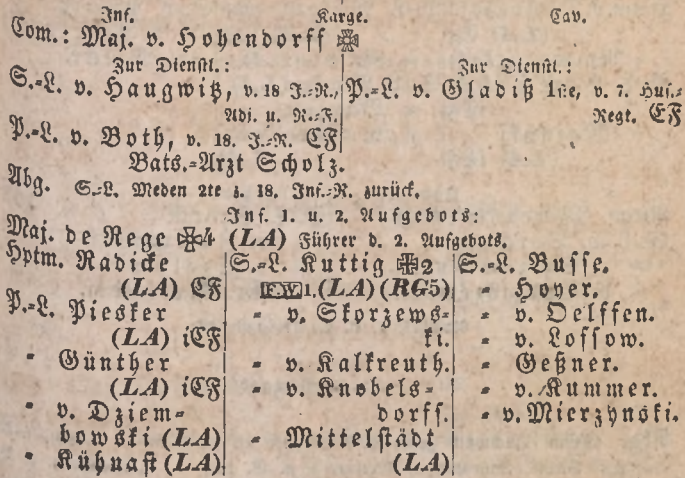 Inf. Karge. Cav.
Com.: Maj. v. Hohendorff ✠
Zur Dienstl.: Zur Dienstl.:
S.=L. v. Haugwitz, v. 18 J.=R., P.=L. v. Gladiß 1ste, v. 7. Hus.=
Adj. u. R.=F. Regt. CF
P.=L. v. Both, v. 18. J.=R. CF
Bats.=Arzt Scholz.
Abg. S.=L. Meden 2te z. 18. Inf.=R. zurück.
Inf. 1. u. 2. Aufgebots:
Maj. de Rege ✠4 (LA) Führer d. 2. Aufgebots.
Hptm. Radicke
(LA) CF
P.=L. Piesker
(LA) iCF
= Günther
(LA) iCF
= v. Dziem=
bowski (LA)
= Kühnast (LA)
S.=L. Kuttig ✠2
1. (LA) (RG5)
= v. Skorzews=
ki.
= v. Kalkreuth.
= v. Knobels=
dorff.
= Mittelstädt
(LA)
S.=L. Busse.
= Hoyer.
= v. Oelffen.
= v. Lossow.
= Geßner.
= v. Kummer.
= v. Mierzynski.